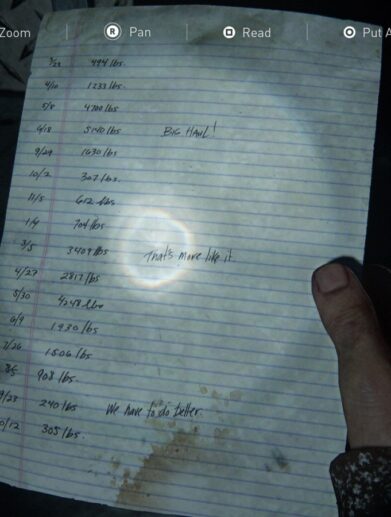 Zoom R Pan Read Put A
3/29 494 lbs.
4/10 1233 lbs.
5/8 4700 lbs.
6/18 5140 lbs. BIG HAUL!
9/29 1630 lbs.
10/2 307 lbs.
11/5 612 lbs
1/4 704 lbs
3/5 3409 lbs That's more like it.
4/27 2817 lbs
5/30 4248 lbs
6/9 1930 lbs
7/26 1506 lbs
908 lbs.
9/23 240 lbs We have to do better.
0/12 305 lbs.